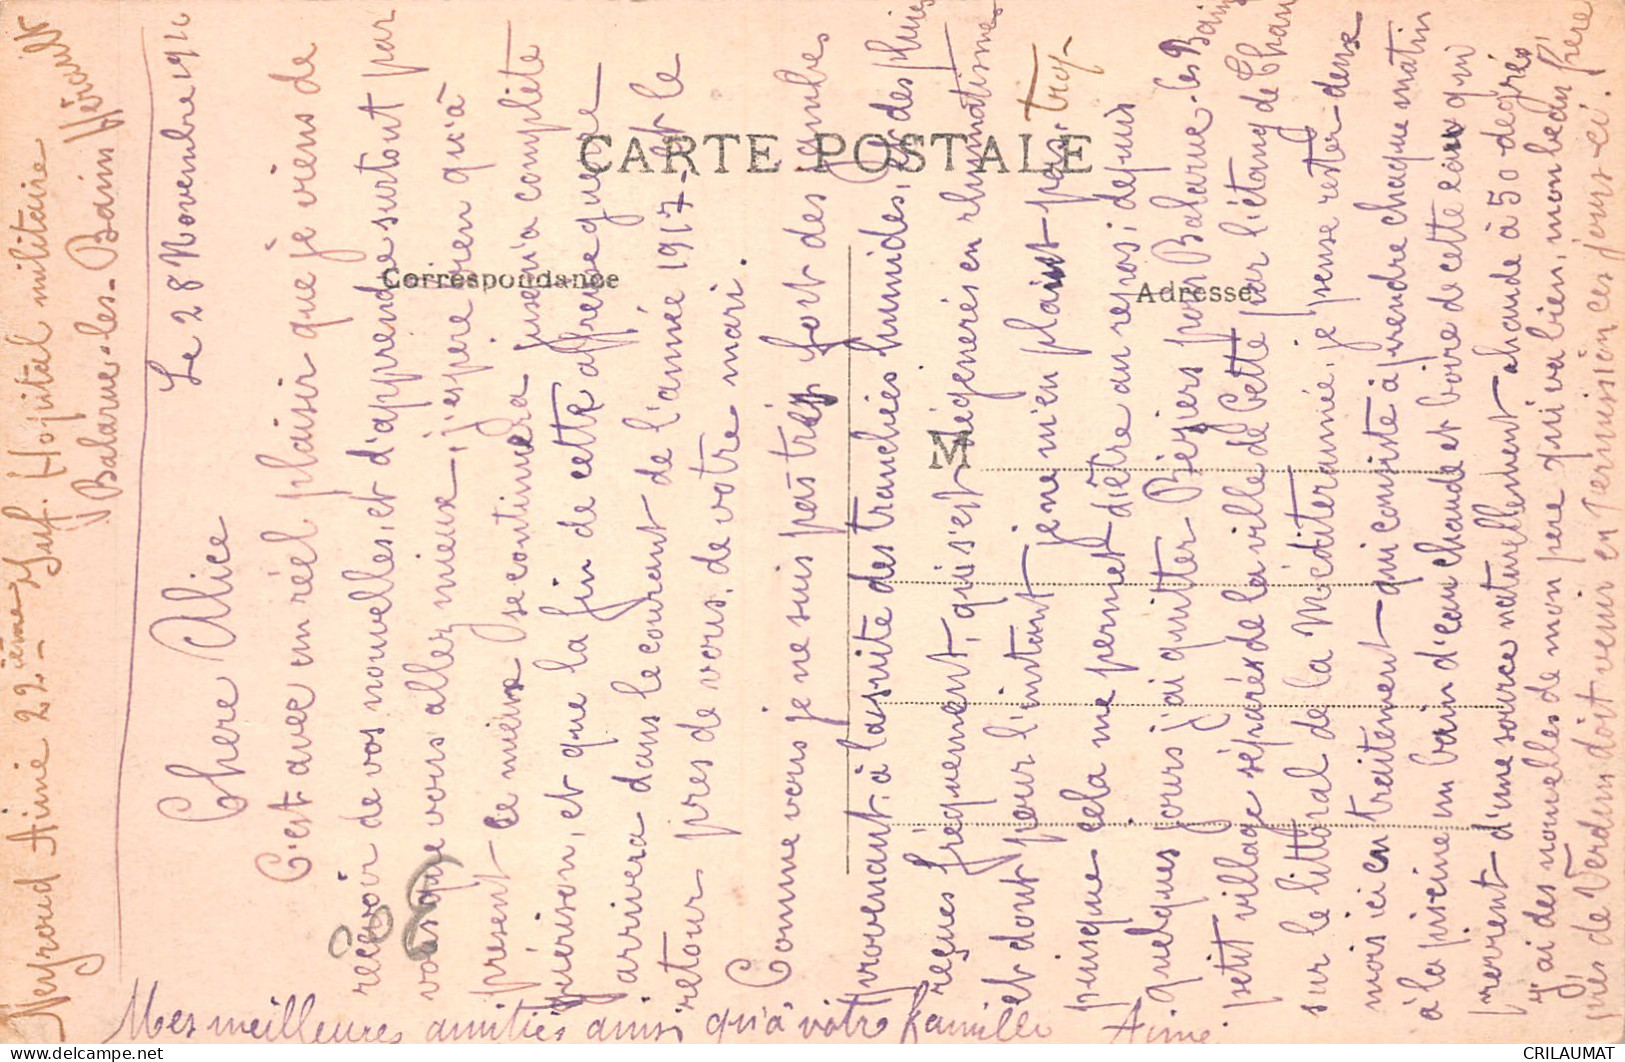 Neyroud Aimé 22ième Inf. Hopital militaire
Balaruc-les-Bain Hérault
Le 28 Novembre 1916
Chere Alice
C'est avec un réel plaisir que je viens de
recevoir de vos nouvelles, et d'apprendre surtout par
vous que vous allez mieux, j'espere bien qu'à
present ce mieux se continuera jusqu'a complète
guérison, et que la fin de cette affreuse guerre
arrivera dans le courant de l'année 1917, et le
retour pres de vous, de votre mari.
Comme vous je ne suis pas très fort des jambes
provenant, à la suite des tranchées humides, et des pluies
reçues fréquement, qui s'est dégénerés en rhumatisme
et dont pour l'instant je ne m'en plaint pas trop
puisque cela me permet d'être au repos; depuis
quelques jours j'ai quitter Béziers pour Balaruc-les-Bains
petit village séparés de la ville de Cette par l'étang de Thau
sur le littoral de la Méditerannée, je pense rester deux
mois ici en traitement qui consiste à prendre chaque matin
à la piscine un bain d'eau chaude et boire de cette eau qui
provient d'une source naturellement chaude à 50 degrés
J'ai des nouvelles de mon pere qui va bien, mon beau frère
près de Verdun doit venir en permission ces jours-ci.
Mes meilleures amitiés ainsi qu'à votre famille Aimé.
CARTE POSTALE
Correspondance
Adresse
M
300
CRILAUMAT